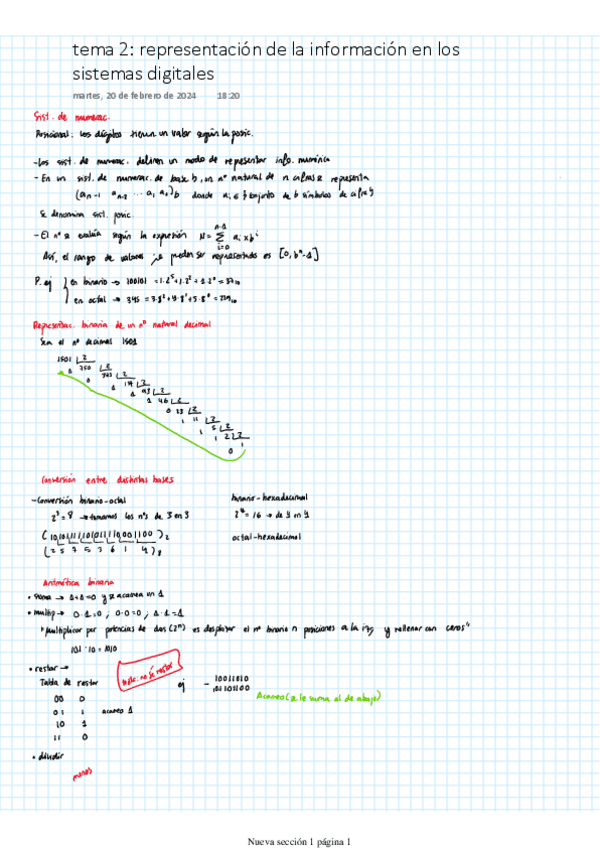 tema 2: representación de la información en los
sistemas digitales
martes, 20 de febrero de 2024 18:20
Sist. de numerac.
Posicional: los dígitos tienen un valor según la posic.
-Los sist. de numerac. definen un modo de representar info. numérica
- En un sist. de numerac. de base b, un nº natural de n cifras se representa
(aₙ₋₁ aₙ₋₂ ... a₁ a₀)b donde aᵢ ∈ conjunto de b símbolos de cifras
Se denomina sist. posic.
- El nº se evalúa según la expresión N = Σ aᵢ × bⁱ
n-1
i=0
Así, el rango de valores que pueden ser representados es [0, bⁿ-1]
P. ej en binario → 100101 = 1.2⁵+1.2²+1.2⁰ = 37₁₀
en octal → 345 = 3.8²+4.8¹+5.8⁰ = 229₁₀
Representac. binaria de un nº natural decimal
Sea el nº decimal 1501
1501 2
1 750 2
0 2
1 2
1 2
1 46 2
0 23 2
1 11 2
1 5 2
1 2 2
0 1
Conversión entre distintas bases
-Conversión binario-octal binario-hexadecimal
2³=8 → tomamos los nºs de 3 en 3 2⁴=16 → de 4 en 4
octal-hexadecimal
(2 5 7 5 3 6 1 4)₈
Aritmética binaria
• suma → 1+1=0 y se acarrea un 1
• multip → 0·1=0; 0·0=0; 1·1=1
"Multiplicar por potencias de dos (2ⁿ) es desplazar el nº binario n posiciones a la izq y rellenar con ceros"
101·10=1010
• restar → explic. no sé restar
Tabla de restar ej - 10011010
00 0 Acarreo (se le suma al de abajo)
01 1 acarreo 1
10 1
11 0
• dividir
menos
Nueva sección 1 página 1